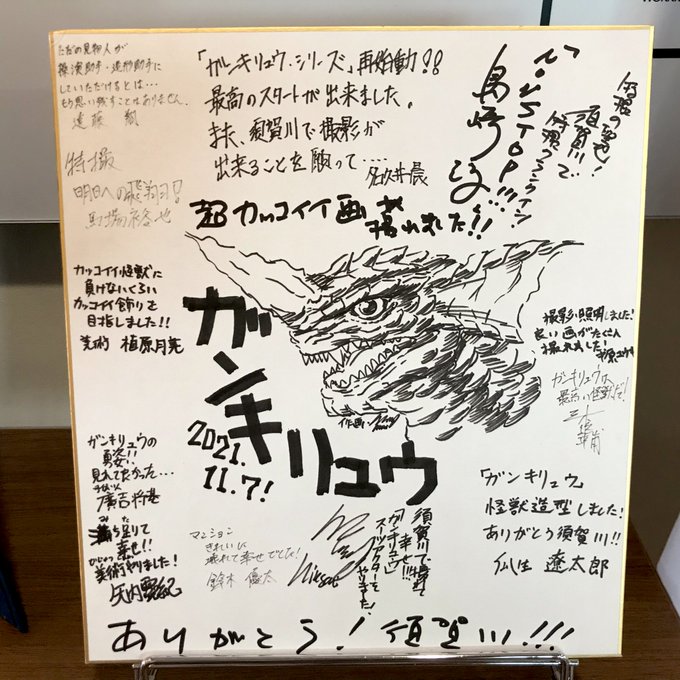 ただの見物人が
操演助手・造形助手に
していただけるとは…
もう思い残すことはありません。
遠藤
「ガンキリュウ・シリーズ」再始動!!
最高のスタートが出来ました。
また、須賀川で撮影が
出来ることを願って・・・・
名久井晨
NONSTOP!!!
特撮の聖地!
須賀川で
特撮
特撮
明日への飛翔!
馬場裕也
超カッコイイ画が
撮れました!!
カッコイイ怪獣に
負けないくらい
カッコイイ飾りを
目指しました!!
美術 植原月亮
撮影・照明しました!
良い画がたくさん
撮れました!
ガンキリュウは
最高の怪獣だ!
ガンキリュウ
2021.
11.7!
作画
ガンキリュウの
勇姿!!
見れてよかった…
廣吉将基
満ち足りて
幸せ!!
美術やりました!
マンション
きれいに
壊れて幸せでした!
鈴木優太
須賀川で撮影で
幸せ!!!
「ガンキリュウ」
スーツアクターを
やりました!
「ガンキリュウ」
怪獣造型しました!
ありがとう須賀川!!
瓜生 遼太郎
ありがとう!須賀川!!!